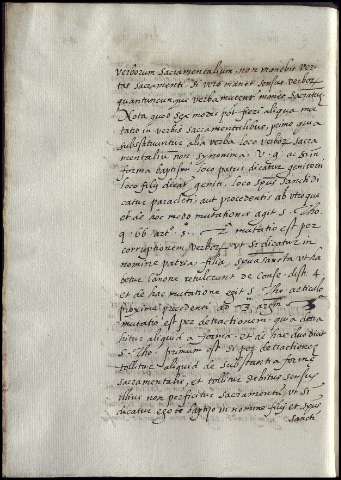 verborum sacramentalium, non manebit veri-
tas sacramenti. si vero manet sensus verborũ
quantuncunque verba mutentur manet sacramentũ
Nota quod sex modis potest fieri aliqua mu
tatio in verbis sacramentalibus, primo quia
substituuntur alia verba loco verborũ sacra
mentalium non synonima. v. g. ac si in
forma baptismi loco patris dicatur genitoris
loco filij dicat geniti, loco spũs sancti di
catur paracleti aut procedentis ab utroque
et de hoc modo mutationis agit s. Tho.
q. 66 art.º 5. 2ª mutatio est per
corruptionem verborũ ut si dicatur in
nomine patria filia, spũa sancta ut ha
betur canone retulerunt de conse. dist. 4
et de hac mutatione agit s. Tho articulo
superiore precedenti ad 3ᵐ argũ 3
mutatio est per detractionem, qua detra
hitur aliquid a forma et de hac duo dicit
s. Tho. primum est si per detractionẽ
tollitur aliquid de substantia forme
sacramentalis, et tollitur debitus sensus
illius non perficitur sacramentũ ut si
dicatur ego te baptizo in nomine filij et spũs
sancti